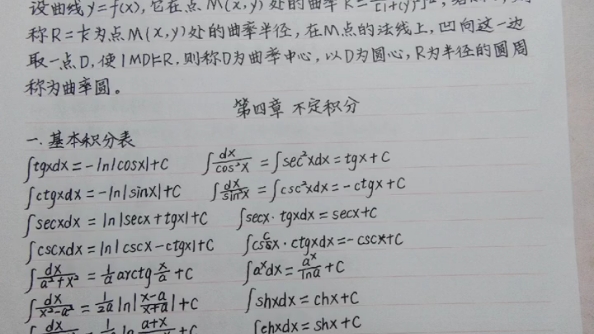 设曲线y=f(x), 它在点M(x,y)处的曲率K=
称R=1/K为点M(x,y)处的曲率半径, 在M点的法线上, 凹向这一边
取一点D, 使|MD|=R, 则称D为曲率中心, 以D为圆心, R为半径的圆周
称为曲率圆。
第四章 不定积分
一. 基本积分表
∫tgxdx=-ln|cosx|+C ∫dx/cos²x=∫sec²xdx=tgx+C
∫ctgxdx=-ln|sinx|+C ∫dx/sin²x=∫csc²xdx=-ctgx+C
∫secxdx=ln|secx+tgx|+C ∫secx·tgxdx=secx+C
∫cscxdx=ln|cscx-ctgx|+C ∫cscx·ctgxdx=-cscx+C
∫dx/(a²+x²)=1/a arctg x/a+C ∫aˣdx=aˣ/lna+C
∫dx/(x²-a²)=1/2a ln|(x-a)/(x+a)|+C ∫shxdx=chx+C
∫chxdx=shx+C